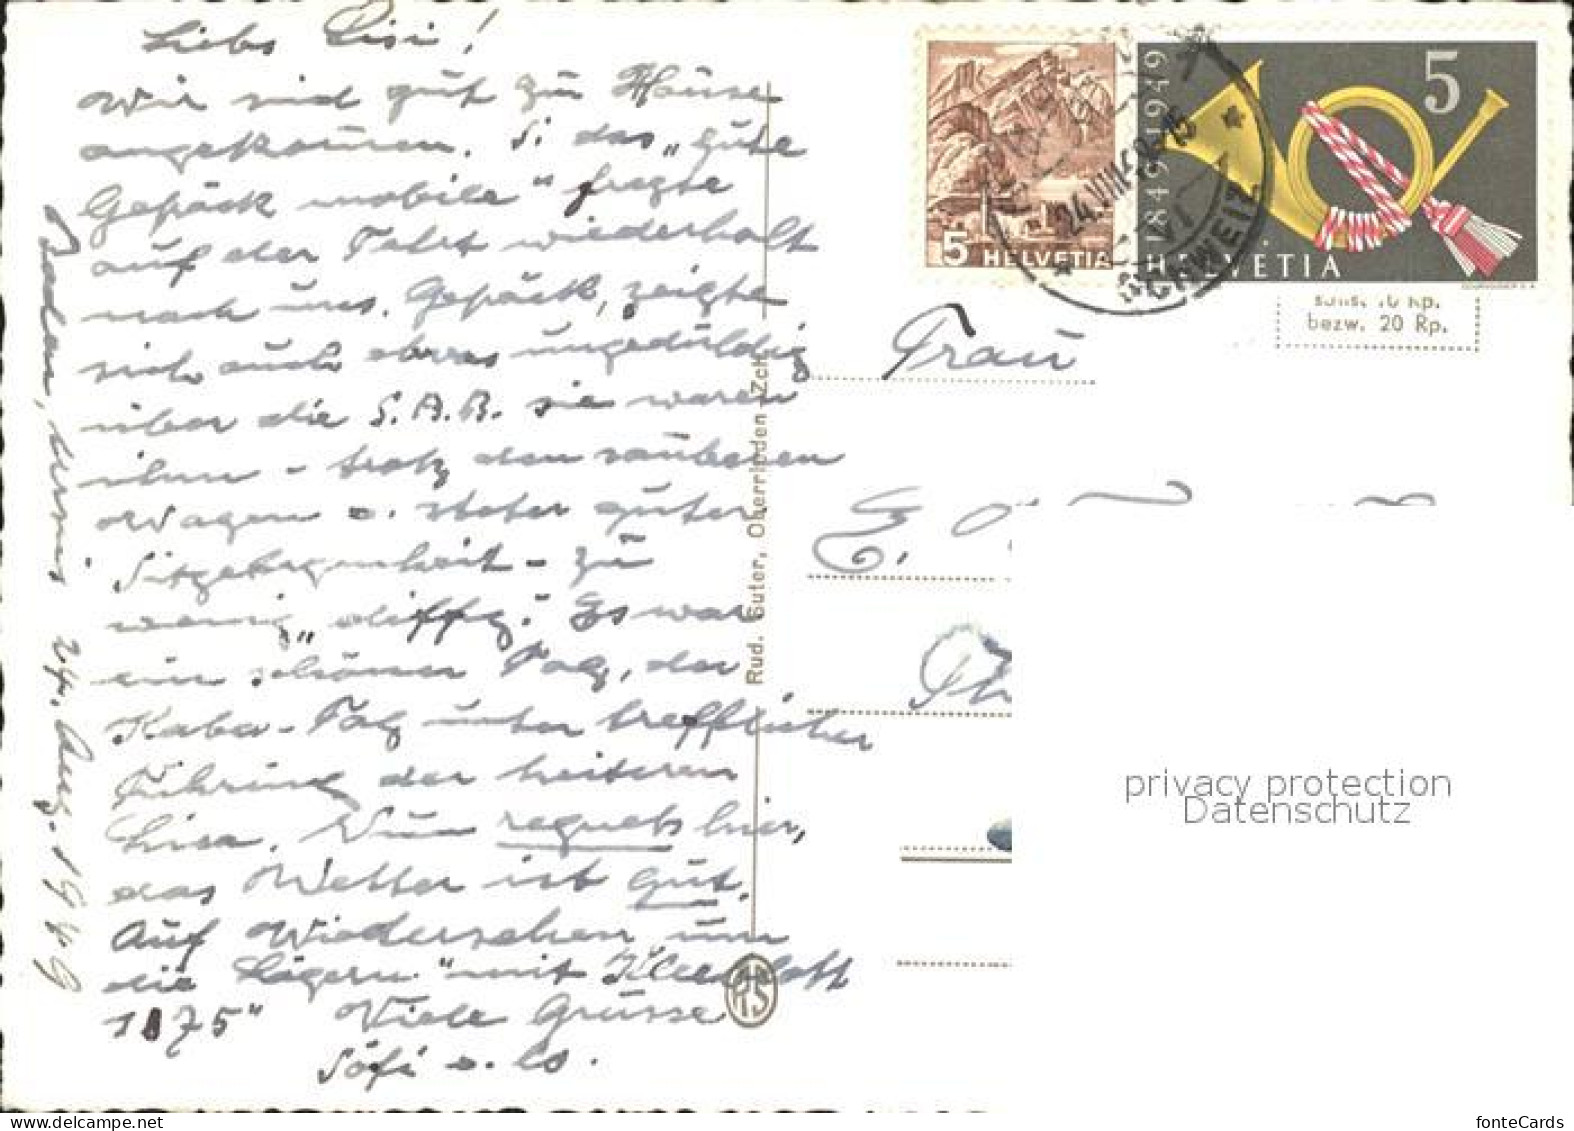 Liebs Lisi!
Wir sind gut zu Hause
angekommen. Di das „gute
Gepäck mobile" fragte
auf der Fahrt wiederholt
nach uns. Gepäck, zeigte
sich auch etwas ungeduldig
über die S.B.B. sie waren
ihm - trotz den sauberen
Wagen u. steter guter
Sitzgelegenheit - zu
wenig „diffig". Es war
ein schöner Tag, der
Kaba-Tag unter trefflicher
Führung der heiteren
Lisa. Nun regnets hier,
das Wetter ist gut.
Auf Wiedersehen um
die Lägern "mit
1875" Viele Grüsse
Söfi u.
Baden, 24. Aug. 1949
Rud. Suter, Oberrieden-Zch.
RS
5
HELVETIA
1849 1949
5
HELVETIA
24.VIII.49
SCHWEIZ
bezw. 20 Rp.
Frau
E.
privacy protection
Datenschutz
fonteCards